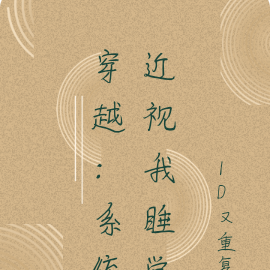 近视我睡学
穿越：系统
ID又重复